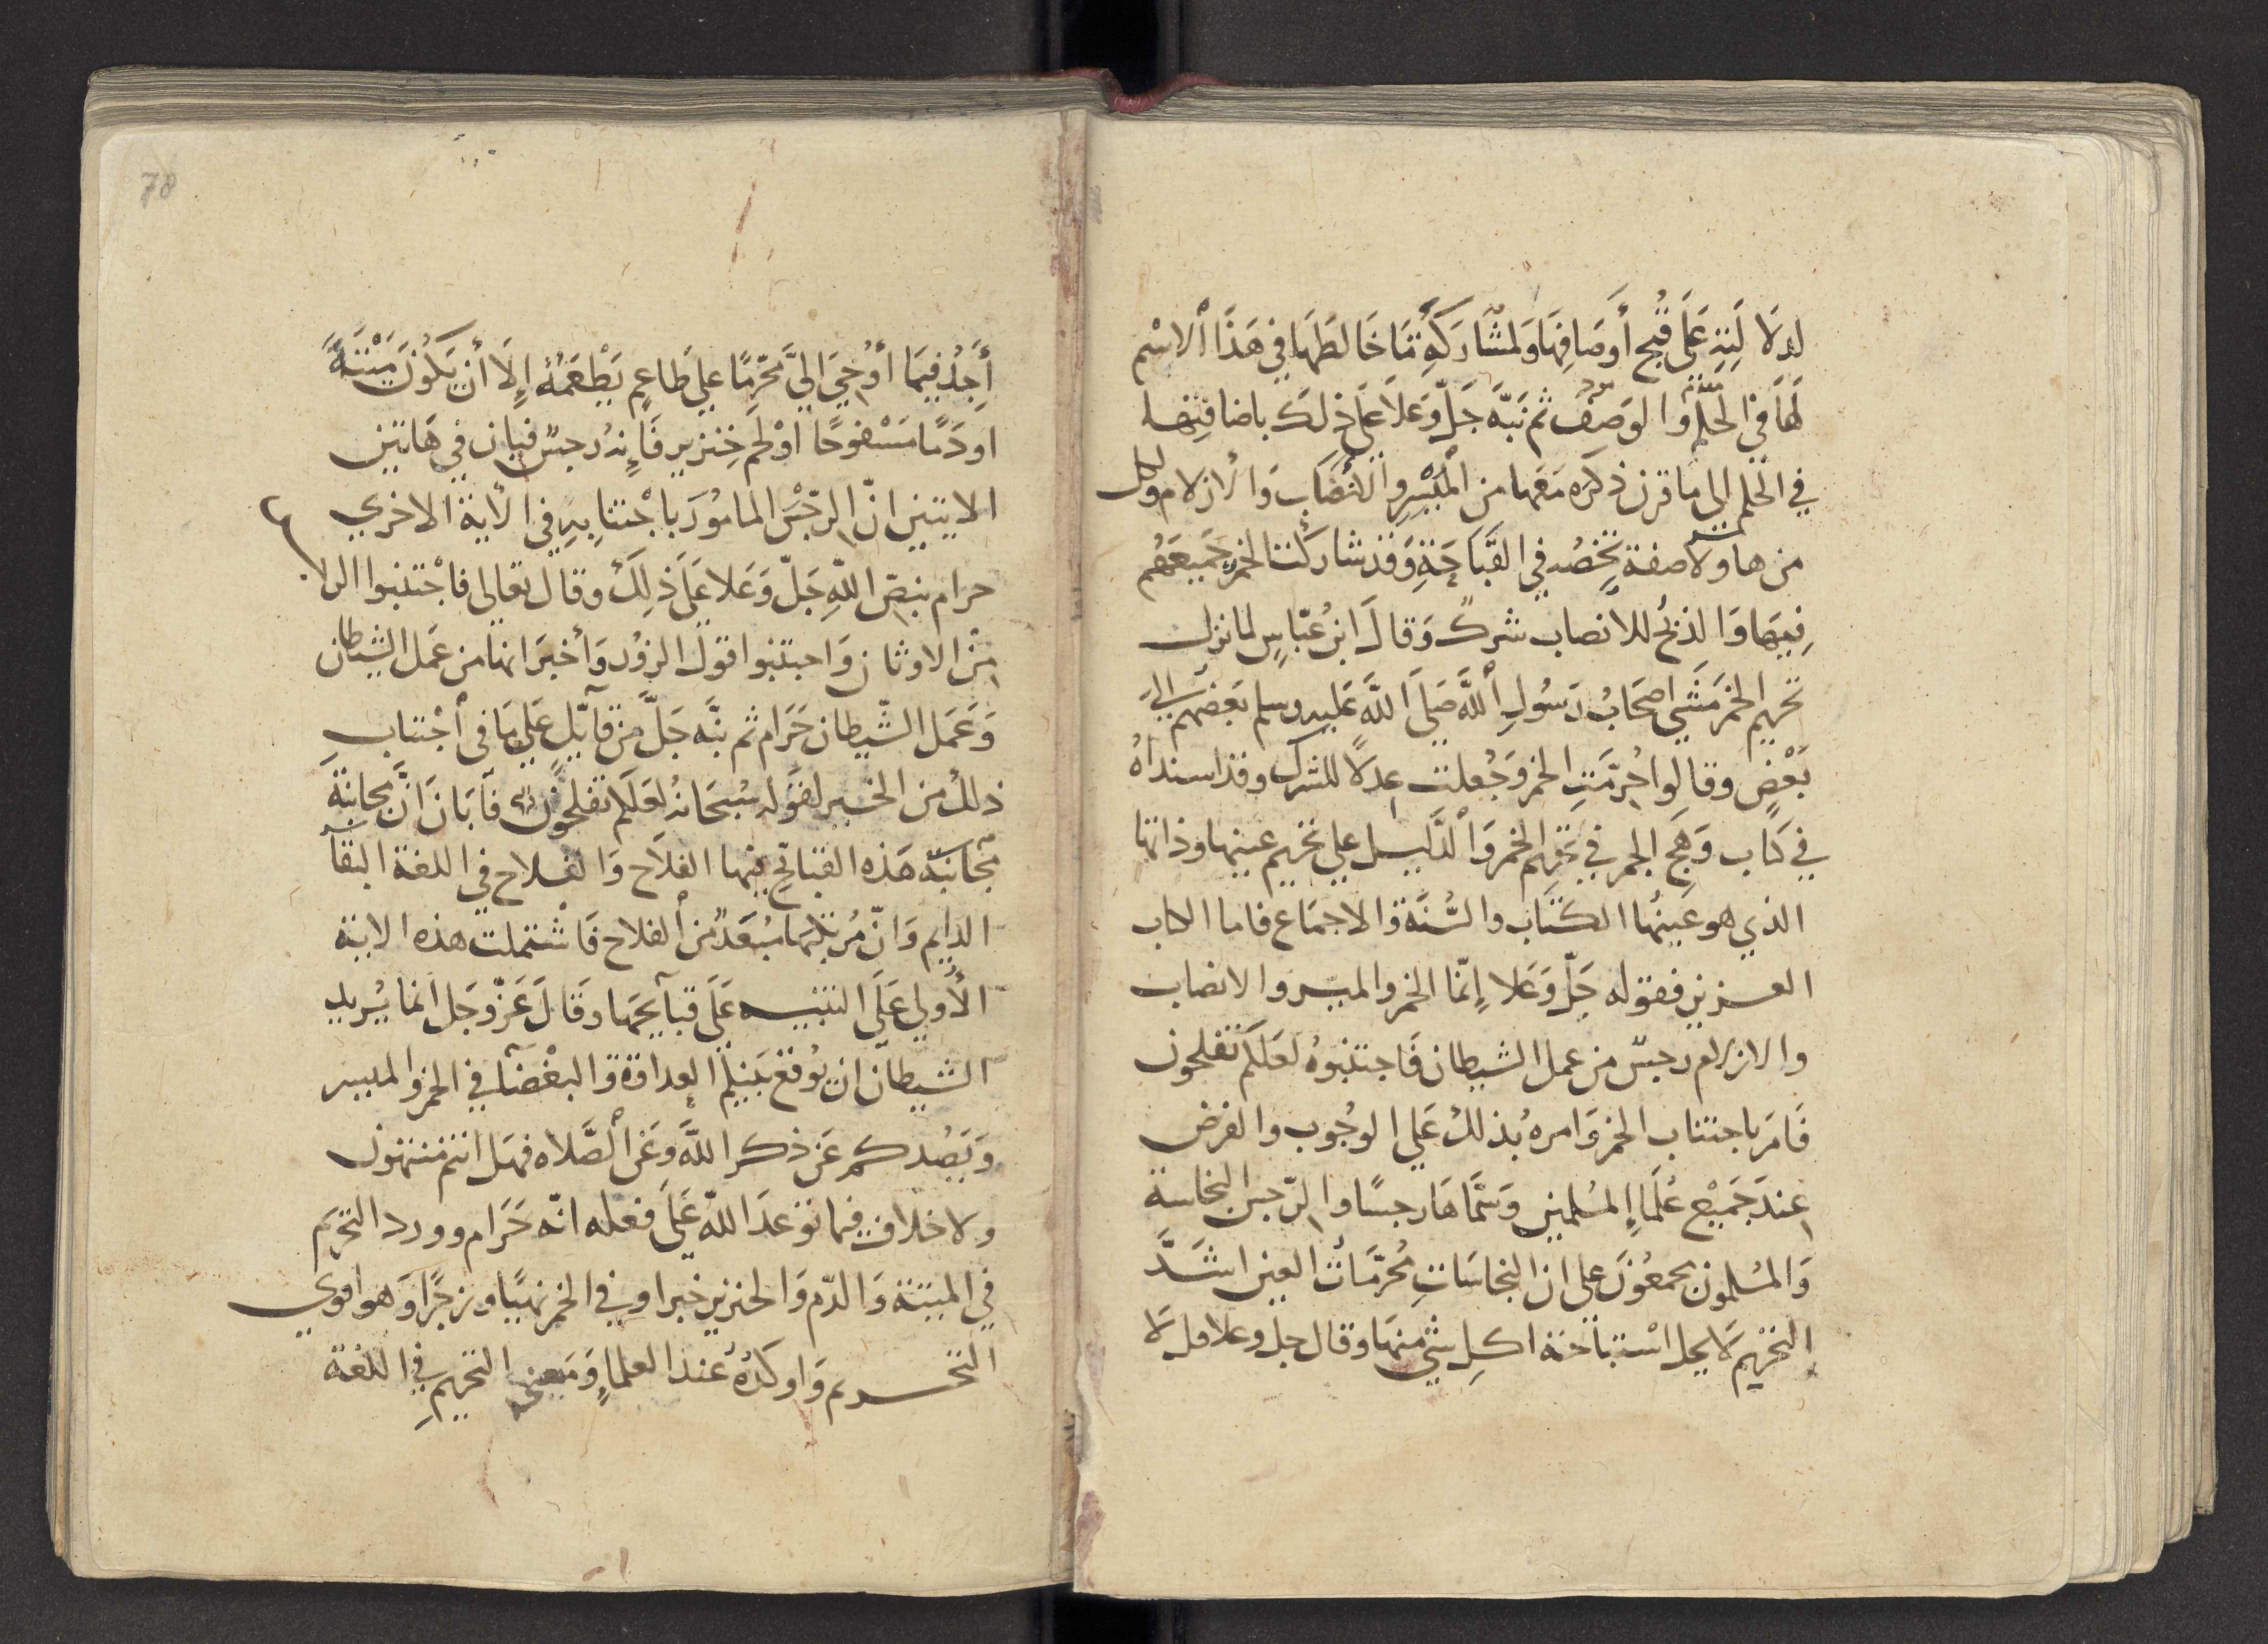 لدلالته على قُبح أَوصَافِهَا وَلمشَاركَةِ مَا خَالطَهَا فِي هَذَا الاسْم
لهَا في الحكم والوَصف ثم نبَّه جَلّ وَعَلا عَلَى ذلك باضافتِها
في الحكم الى مَا قرن ذكره مَعَها من المَيْسِرِ والأنصَاب وَالأزلام ولكل
من هاولآ صفة تخصُه في القَبَاحَةِ وَقد شاركتْ الخمر جَميعَهُم
فِيهَا وَالذبحُ للانصاب شركٌ وَقالَ ابنُ عبّاسٍ لما نزل
تحريم الخمر مَشَى اصحَابُ رَسُولِ اللَّه صَلَى اللَّه عَليه وسلم بَعضهم الى
بَعْضٍ وقالوا حُرّمَتِ الخمر وَجُعلت عِدلاً للشرك وقد اسندناهُ
في كتاب وَهَج الجمر في تحريم الخمر وَالدَّليل على تحريم عينها وذاتها
الذي هو عَينُها الكتَاب والسُّنَّة والاجمَاع فاما الكتاب
العزيز فقوله جَلّ وَعَلا إنّما الخمر والميسر والانصاب
والازلام رجسٌ من عمل الشيطان فَاجتنبوهُ لعَلكم تفلحون
فَامَر باجتناب الخمر وَامره بذلكَ عَلى الوُجُوب والفرض
عِندَ جَميْع عُلمَاءِ المسُلمين وَسَمّاهَا رجسًا والرّجس النجاسة
وَالمسُلمون مجمعُونَ على ان النجاسَاتِ مُحرّمَاتُ العين اشَدَّ
التحريم لَا يحل اسْتبَاحَة اكلِ شَيْ منهَا وقال جل وعلا قل لَا
78
أَجِدُ فيمَا أُوْحِيَ الىَّ مُحَرَّمًا على طَاعِمٍ يَطْعَمُهُ إلَا أن يَكُونَ مَيْتَةً
اودَمًا مَسْفوحًا اوْ لحم خِنزير فَإنهُ رجسٌ فبان في هَاتين
الايتين انّ الرّجْسَ المامُورَ باجْتنابهِ في الآية الاخرى
حرام بنصّ اللّهِ جَلّ وَعَلا عَلى ذلكَ وقال تعالى فاجْتنبوا الرجس
مِنْ الاوثان وَاجتنبوا قول الزوُر وَأخبَر انها من عَمل الشيطان
وَعَمَل الشّيطان حَرَام ثم نبَّه جَلَّ مِن قآيلٍ عَلى مَا في اجْتنابِ
ذلكَ من الخير لقوَله سُبحَانهُ لعَلكم تفلحُون فَابَانَ انَّ مجانبةَ
مجانبَة هَذه القبائح فيها الفلاَح وَالفلاح في اللغة البقآ
الدايم وَانّ مُرتكبهَا مبُعَدٌ من الفلاح فَاشتملت هذه الاية
الأُولى عَلَى التنبيه عَلى قبآيحَها وَقَالَ عَزّ وَجَل انما يُريد
الشيطان ان يُوقع بَينكم العداوة والبغْضآ في الخمر والميسر
وَيَصُدكم عَن ذكر اللَّه وَعَن الصَّلاه فهَل انتم منتهون
ولاخلاف فيما توَعدَ اللّه عَلَى فعله انّه حَرَام وورد التحريم
في الميتة وَالدّم وَالخنزير خبرا وفي الخمر نهيًا وزجرًا وَهو اقوى
التحريم وَاوكدهُ عند العلماءِ وَمَعنى التحريمِ في اللغة